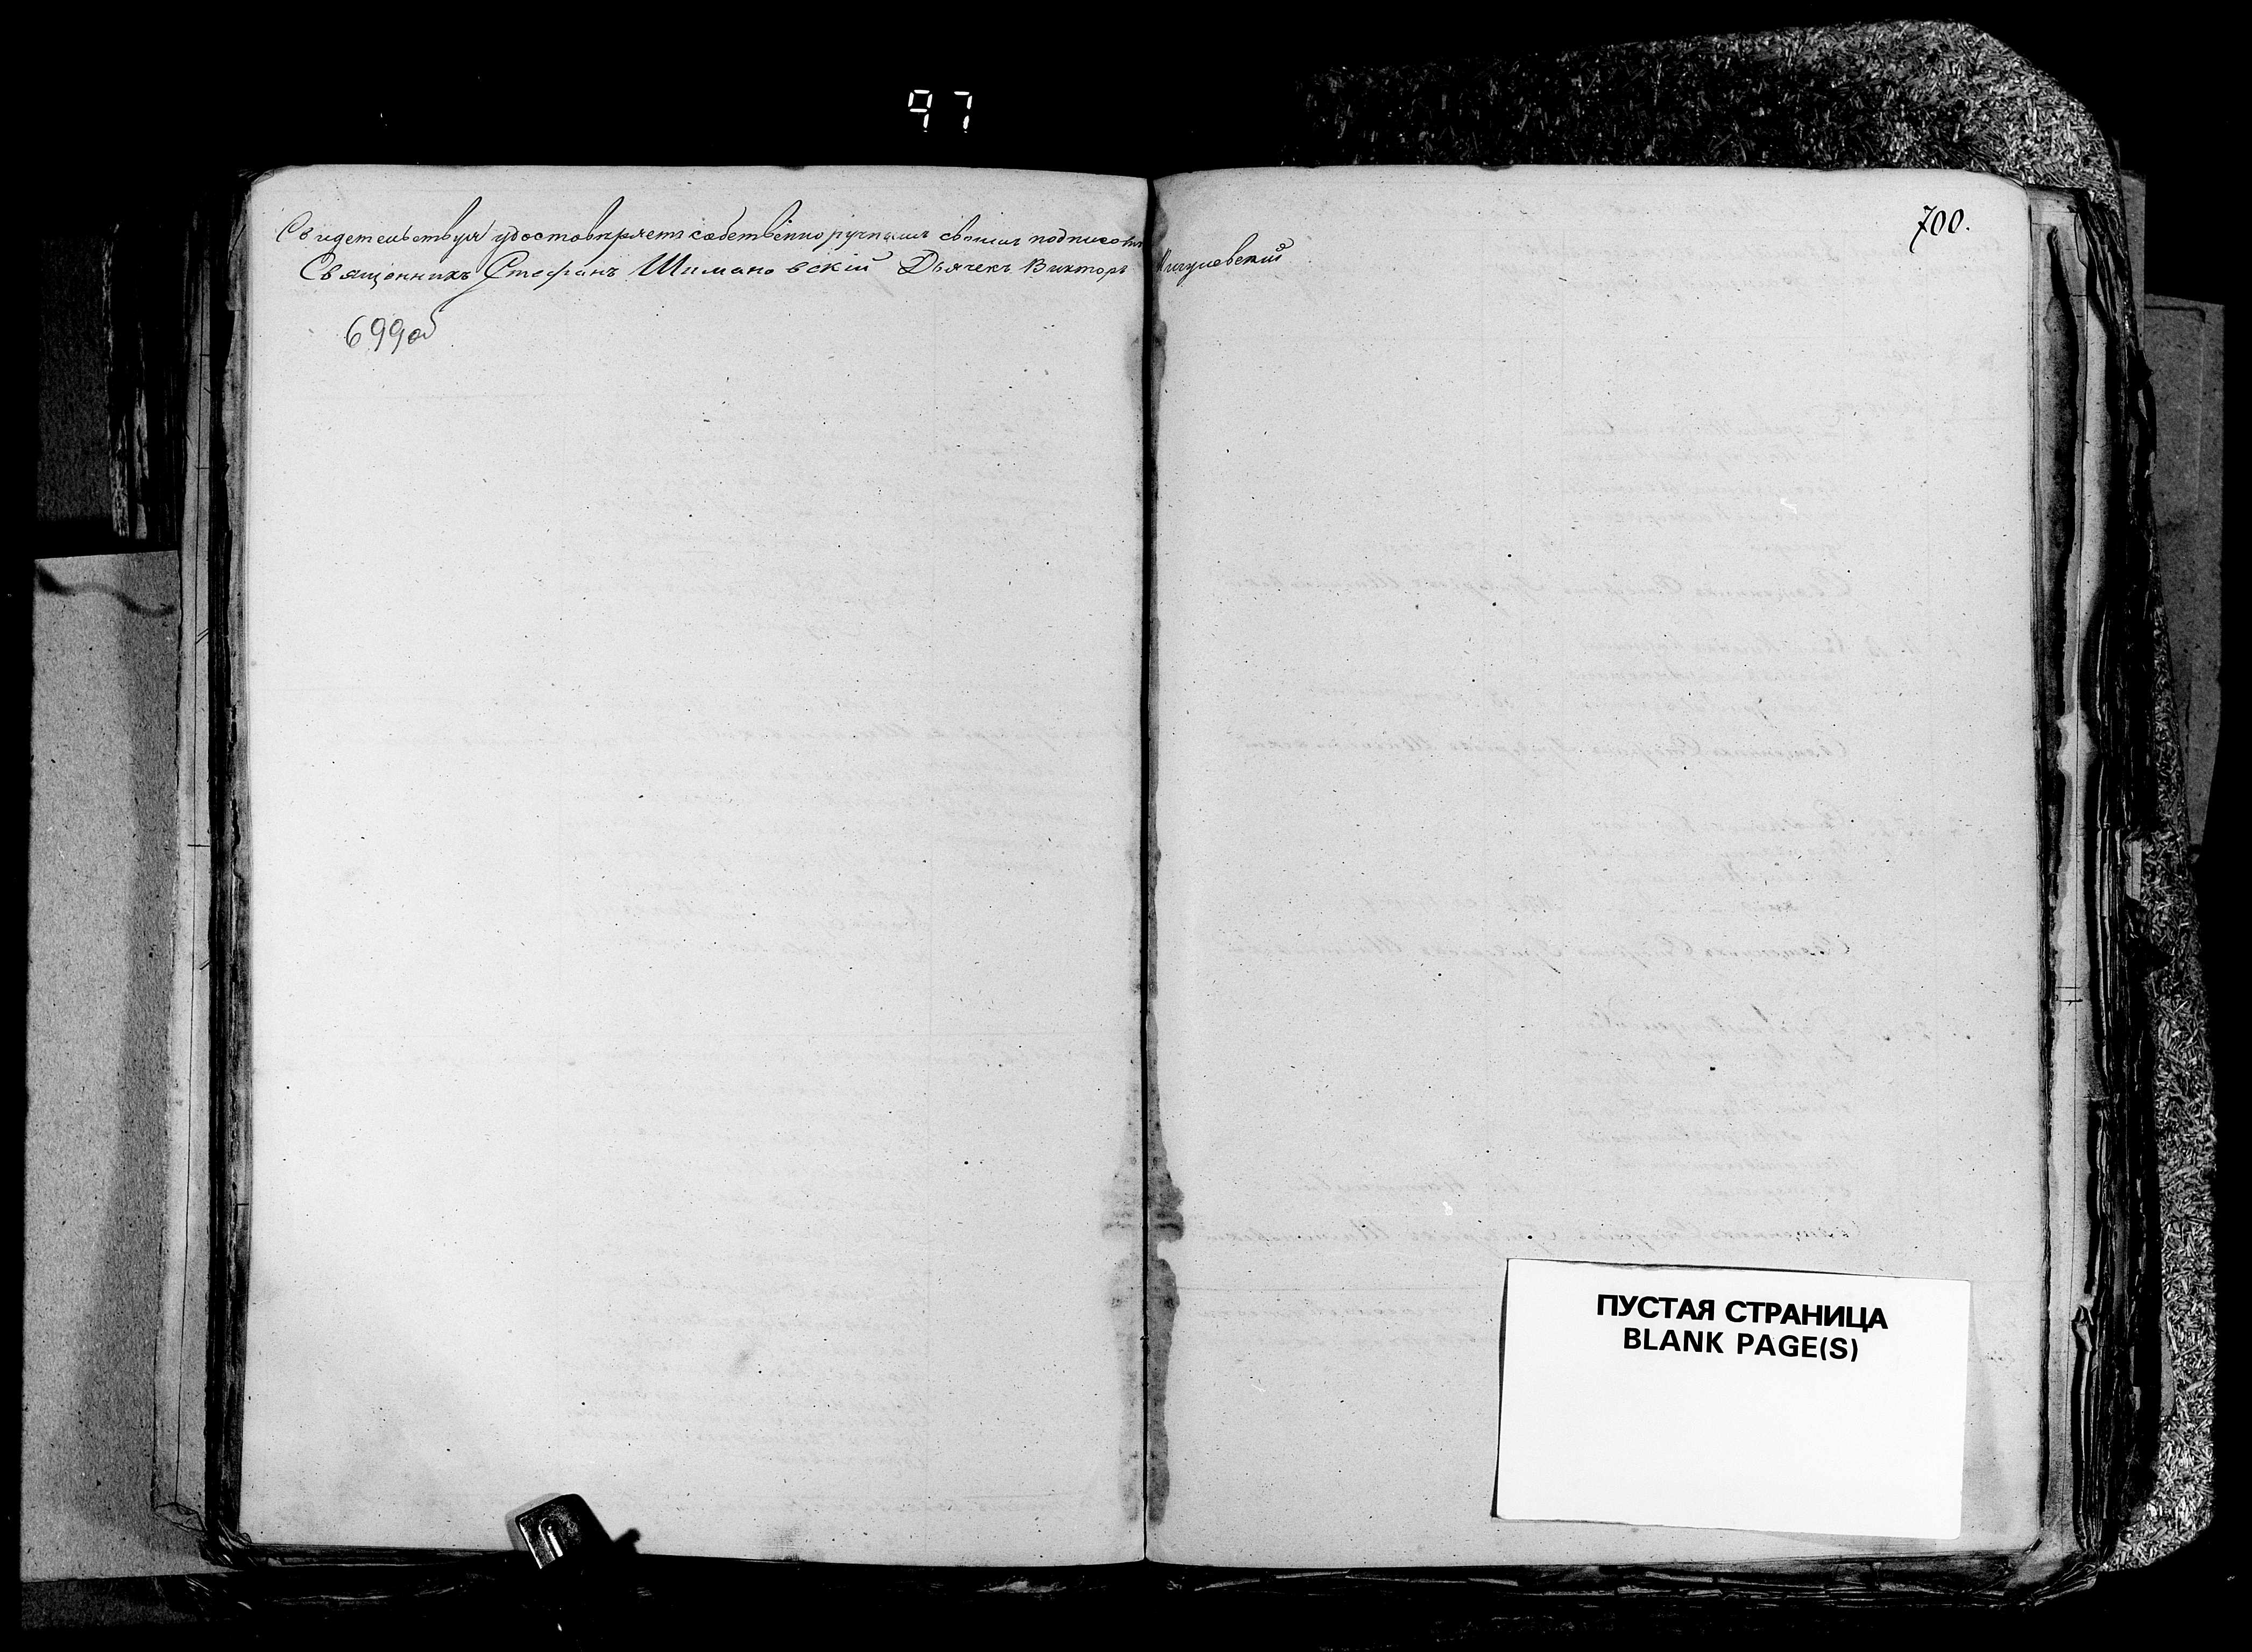 97
700.
Свидетельствуя удостовѣряетъ собственноручнымъ своимъ подписомъ
Священникъ Стефанъ Шимановскій Дьячекъ Викторъ
699об
ПУСТАЯ СТРАНИЦА
BLANK PAGE(S)